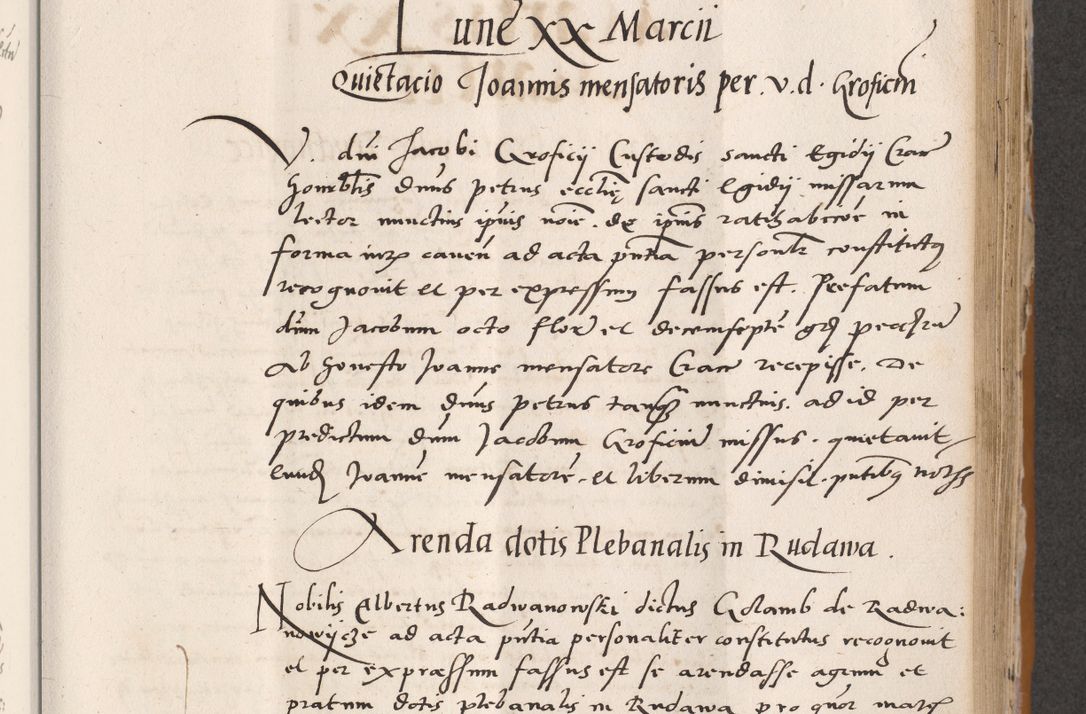 Lune xx Marcii
Quietacio Joannis mensatoris per v. d. Groficiu
V. dni Jacobi Groficij Custodis sancti Egidij Crac
honorblis dnus petrus ecclie sancti Egidij missarum
lector nunctius ipius noie de ipius ratihabcoe in
forma iuris caven ad acta pntia personlr constitutus
recognovit et per expressum fassus est. Prefatum
dnm Jacobum octo flor et decemsepte grs pecuniar
Ab honesto Joanne mensatore Crac recepisse. De
quibus idem dnus petrus tanq nunctius. ad id per
predictum dnm Jacobum Groficiu missus. quietavit
eund Joanne mensatore. et liberum dimisit. pntibus
Arenda dotis Plebanalis in Rudawa.
Nobilis Albertus Radwanowski dictus Golamb de Radwa:
nowijcze ad acta pntia personaliter constitutus recognovit
et per expræssum fassus est se arendasse agrum et
pratum dotis plebanalis in Rudawa pro quor